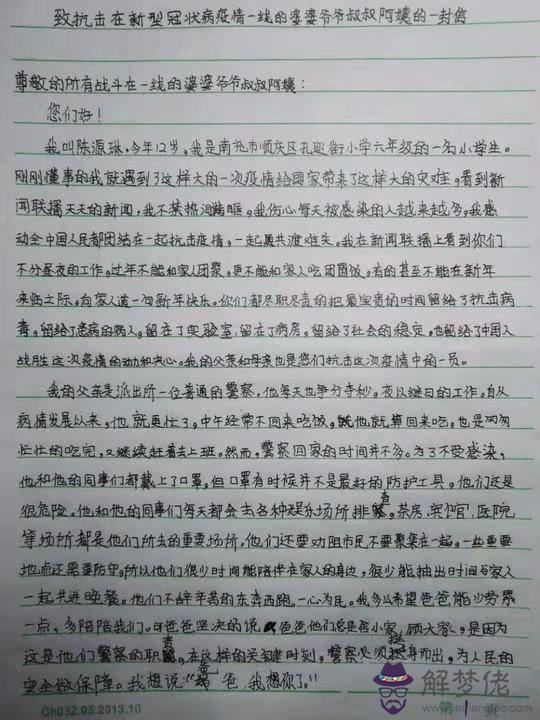 致抗击在新型冠状病疫情一线的婆婆爷爷叔叔阿姨的一封信
尊敬的所有战斗在一线的婆婆爷爷叔叔阿姨：
您们好！
我叫陈源琳，今年12岁。我是南充市顺庆区孔迩街小学六年级的一名小学生。
刚刚懂事的我就遇到了这样大的一次疫情给国家带来了这样大的灾难，看到新
闻联播天天的新闻，我不禁热泪盈眶。我伤心每天被感染的人越来越多，我感
动全中国人民都团结在一起抗击疫情，一起属共渡难关。我在新闻联播上看到你们
不分昼夜的工作。过年不能和家人团聚，更不能和家人吃团圆饭，有的甚至不能在新年
来临之际。向家人道一句新年快乐。你们都尽职尽责的把最宝贵的时间留给了抗击病
毒。留给了患病的病人，留在了实验室，留在了病房。留给了社会的稳定，也留给了中国人
战胜这次疫情的动力和决心。我的父亲和母亲也是您们抗击这次疫情中的一员。
我的父亲是派出所一位普通的警察，他每天也争分夺秒。夜以继日的工作。自从
病情发展以来，他就更忙了，中午经常不回来吃饭，他就算回来吃，也是匆匆
忙忙的吃完，又继续赶着去上班。然而，警察回家的时间并不多。为了不受感染，
他和他的同事们都戴上了口罩，但口罩有时候并不是最好的防护工具。他们还是
很危险。他和他的同事们每天都会去各种娱乐场所排查，茶房、宾馆、医院
等场所都是他们所去的重要场所。他们还要劝阻市民不要聚集在一起。一些重要
地点还需要防守。所以他们很少时间能陪伴在家人的身边，很少能抽出时间与家人
一起共进晚餐。他们不辞辛苦的东奔西跑，一心为民。我多么希望爸爸能少劳累
一点，多陪陪我们。可爸爸坚决的说 爸爸他们总是舍小家，顾大家，是因为
这是他们警察的职责，在这样的关键时刻，警察必须挺身而出，为人民的
安全做保障。我想说“爸爸，我想你了。”
Ch032.98.2013.10
第1页
解梦佬
JIEMENGLAO.COM